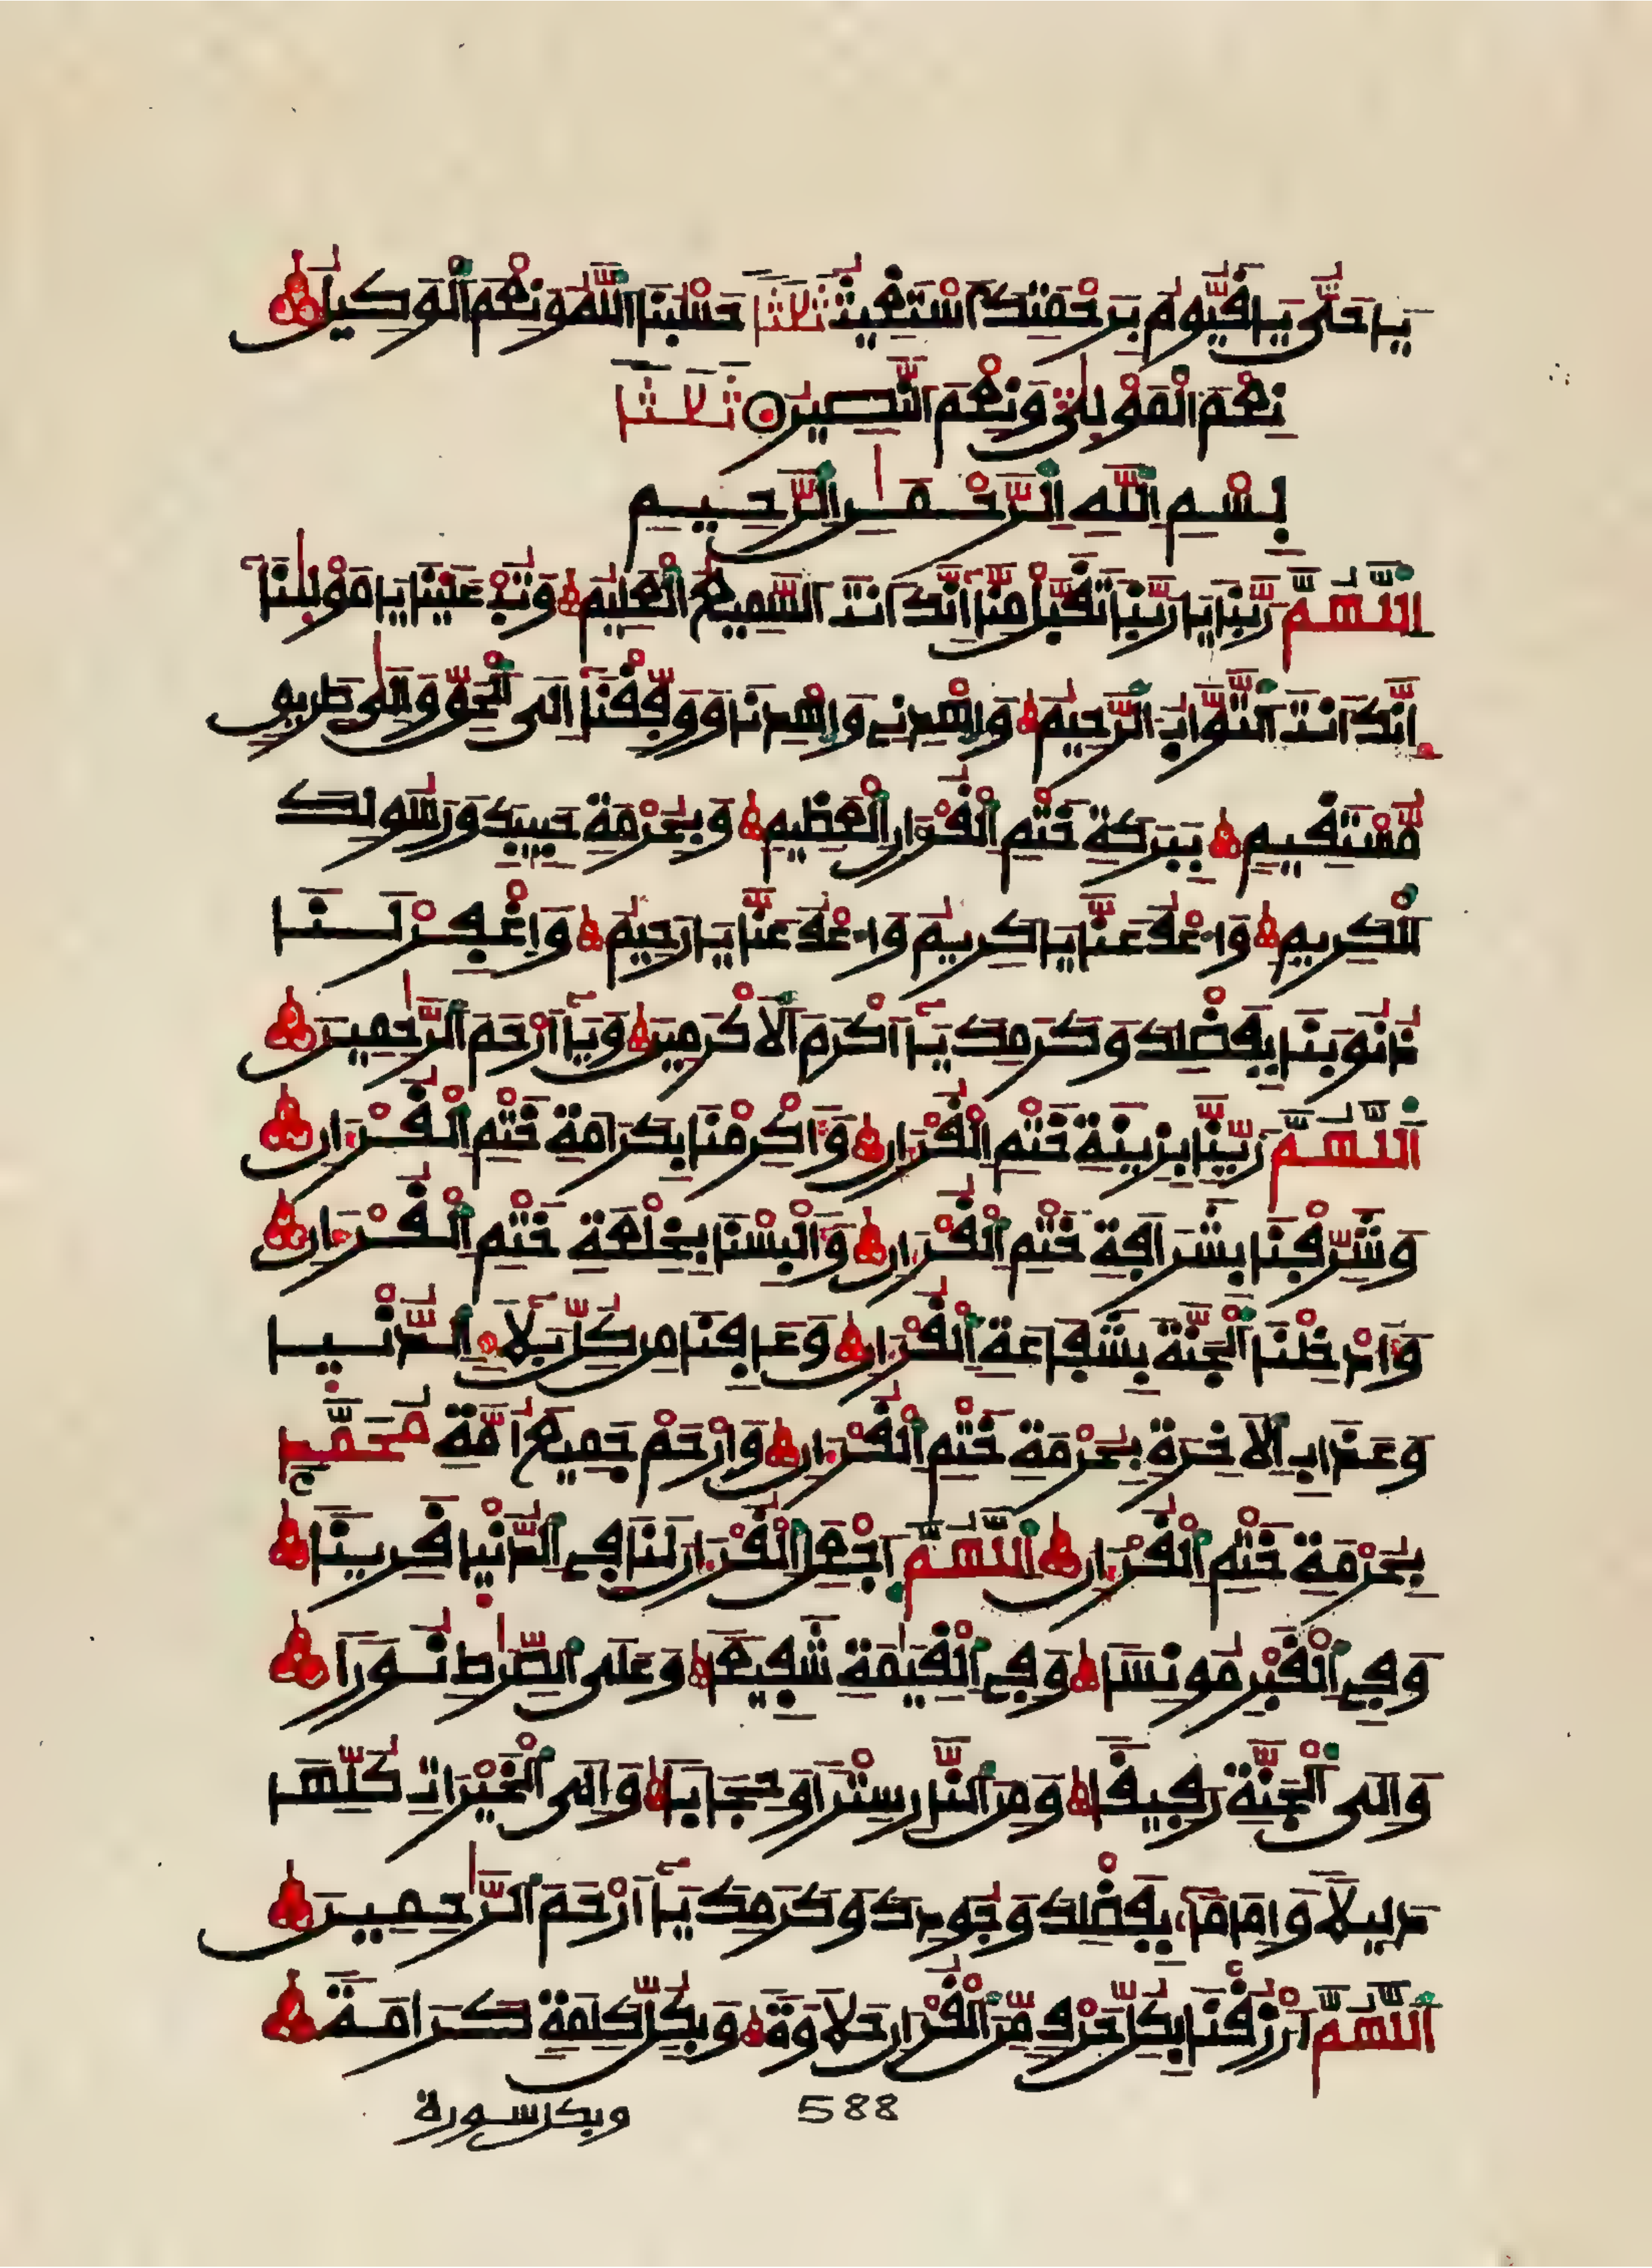 يَا حَيُّ يَا قَيُّومُ بِرَحْمَتِكَ أَسْتَغِيثُ ثَلَاثًا حَسْبُنَا اللَّهُ وَنِعْمَ الْوَكِيلُ
نِعْمَ الْمَوْلَى وَنِعْمَ النَّصِيرُ ثَلَاثًا
بِسْمِ اللَّهِ الرَّحْمَٰنِ الرَّحِيمِ
اللَّهُمَّ رَبَّنَا يَا رَبَّنَا تَقَبَّلْ مِنَّا إِنَّكَ أَنْتَ السَّمِيعُ الْعَلِيمُ وَتُبْ عَلَيْنَا يَا مَوْلَينَا
إِنَّكَ أَنْتَ التَّوَّابُ الرَّحِيمُ وَاهْدِنَا وَوَفِّقْنَا إِلَى الْحَقِّ وَإِلَى طَرِيقٍ
مُّسْتَقِيمٍ بِبَرَكَةِ خَتْمِ الْقُرْءَانِ الْعَظِيمِ وَبِحُرْمَةِ حَبِيبِكَ وَرَسُولِكَ
الْكَرِيمِ وَاعْفُ عَنَّا يَا كَرِيمُ وَاعْفُ عَنَّا يَا رَحِيمُ وَاغْفِرْ لَنَا
ذُنُوبَنَا بِفَضْلِكَ وَكَرَمِكَ يَا أَكْرَمَ الْأَكْرَمِينَ وَيَا أَرْحَمَ الرَّٰحِمِينَ
اللَّهُمَّ زَيِّنَّا بِزِينَةِ خَتْمِ الْقُرْءَانِ وَأَكْرِمْنَا بِكَرَامَةِ خَتْمِ الْقُرْءَانِ
وَشَرِّفْنَا بِشَرَافَةِ خَتْمِ الْقُرْءَانِ وَأَلْبِسْنَا بِخِلْعَةِ خَتْمِ الْقُرْءَانِ
وَأَدْخِلْنَا الْجَنَّةَ بِشَفَاعَةِ الْقُرْءَانِ وَعَافِنَا مِنْ كُلِّ بَلَاءِ الدُّنْيَا
وَعَذَابِ الْآخِرَةِ بِحُرْمَةِ خَتْمِ الْقُرْءَانِ وَارْحَمْ جَمِيعَ أُمَّةِ مُحَمَّدٍ
بِحُرْمَةِ خَتْمِ الْقُرْءَانِ اللَّهُمَّ اجْعَلِ الْقُرْءَانَ لَنَا فِي الدُّنْيَا قَرِينًا
وَفِي الْقَبْرِ مُونِسًا وَفِي الْقِيَٰمَةِ شَفِيعًا وَعَلَى الصِّرَٰطِ نُورًا
وَإِلَى الْجَنَّةِ رَفِيقًا وَمِنَ النَّارِ سِتْرًا وَحِجَابًا وَإِلَى الْخَيْرَاتِ كُلِّهَا
دَلِيلًا وَإِمَامًا بِفَضْلِكَ وَجُودِكَ وَكَرَمِكَ يَا أَرْحَمَ الرَّٰحِمِينَ
اللَّهُمَّ ارْزُقْنَا بِكُلِّ حَرْفٍ مِّنَ الْقُرْءَانِ حَلَاوَةً وَبِكُلِّ كَلِمَةٍ كَرَامَةً
588 وبكل سورة